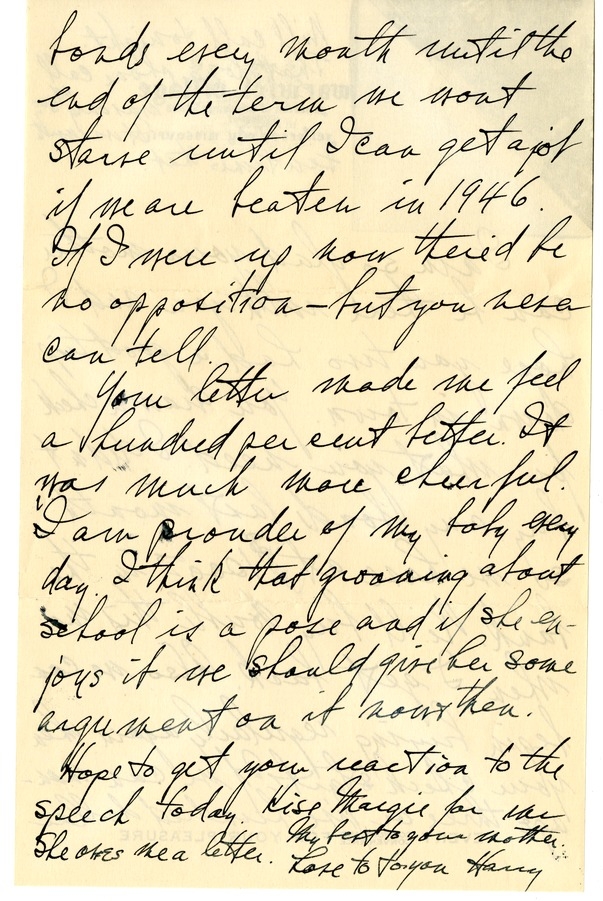 bonds every month until the
end of the term we wont
starve until I can get a job
if we are beaten in 1946.
If I were up now there'd be
no opposition – but you never
can tell.
Your letter made me feel
a hundred per cent better. It
was much more cheerful.
I am prouder of my baby every
day. I think that groaning about
school is a pose and if she en-
joys it we should give her some
argument on it now & then.
Hope to get your reaction to the
speech today. Kiss Margie for me
She owes me a letter. My best to your mother.
Love to you Harry